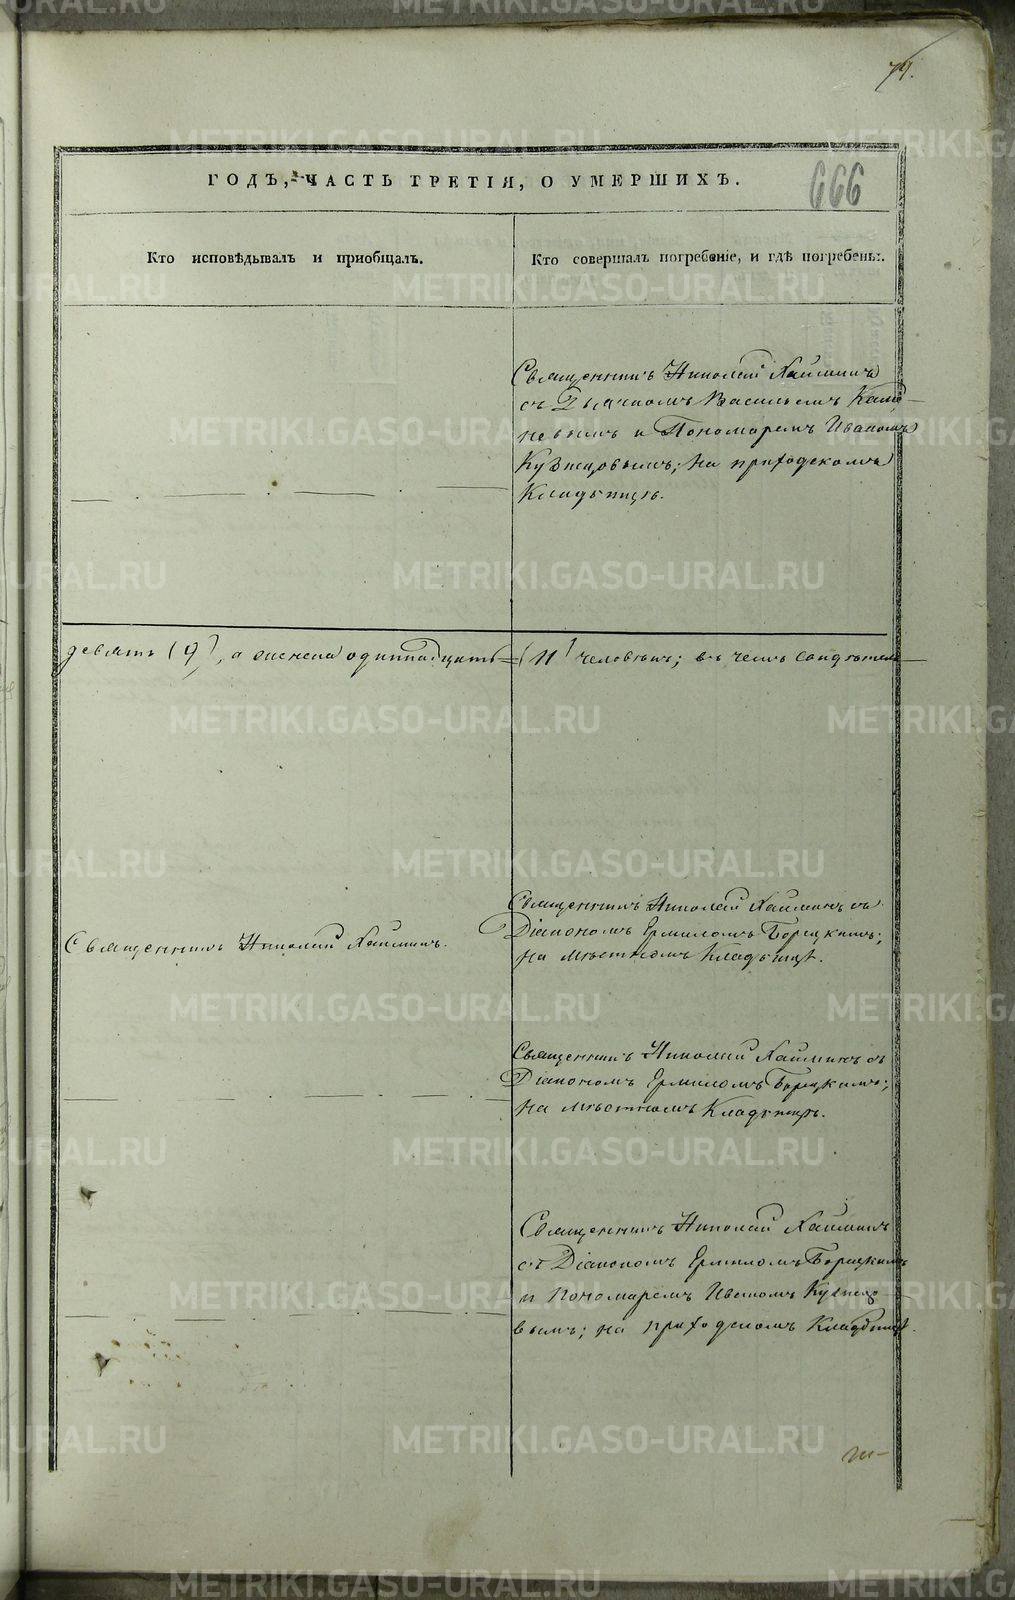 74.
666
ГОДЪ, ЧАСТЬ ТРЕТІЯ, О УМЕРШИХЪ.
Кто исповѣдывалъ и приобщалъ.
Кто совершалъ погребеніе, и гдѣ погребены.
Священникъ Николай Хайминъ
съ Дьячкомъ Васильемъ Каме-
невымъ и Пономаремъ Иваномъ
Кузнецовымъ; на приходскомъ
Кладбищѣ.
девять (9), а женска одиннадцать (11) человѣкъ; въ чемъ свидѣтель-
Священникъ Николай Хайминъ.
Священникъ Николай Хайминъ съ
Діакономъ Ермиломъ Борецкимъ;
на мѣстномъ Кладбищѣ.
Священникъ Николай Хайминъ съ
Діакономъ Ермиломъ Борецкимъ;
на мѣстномъ Кладбищѣ.
Священникъ Николай Хайминъ
съ Діакономъ Ермиломъ Борецкимъ
и Пономаремъ Иваномъ Кузнецо-
вымъ; на приходскомъ Кладбищѣ.
METRIKI.GASO-URAL.RU